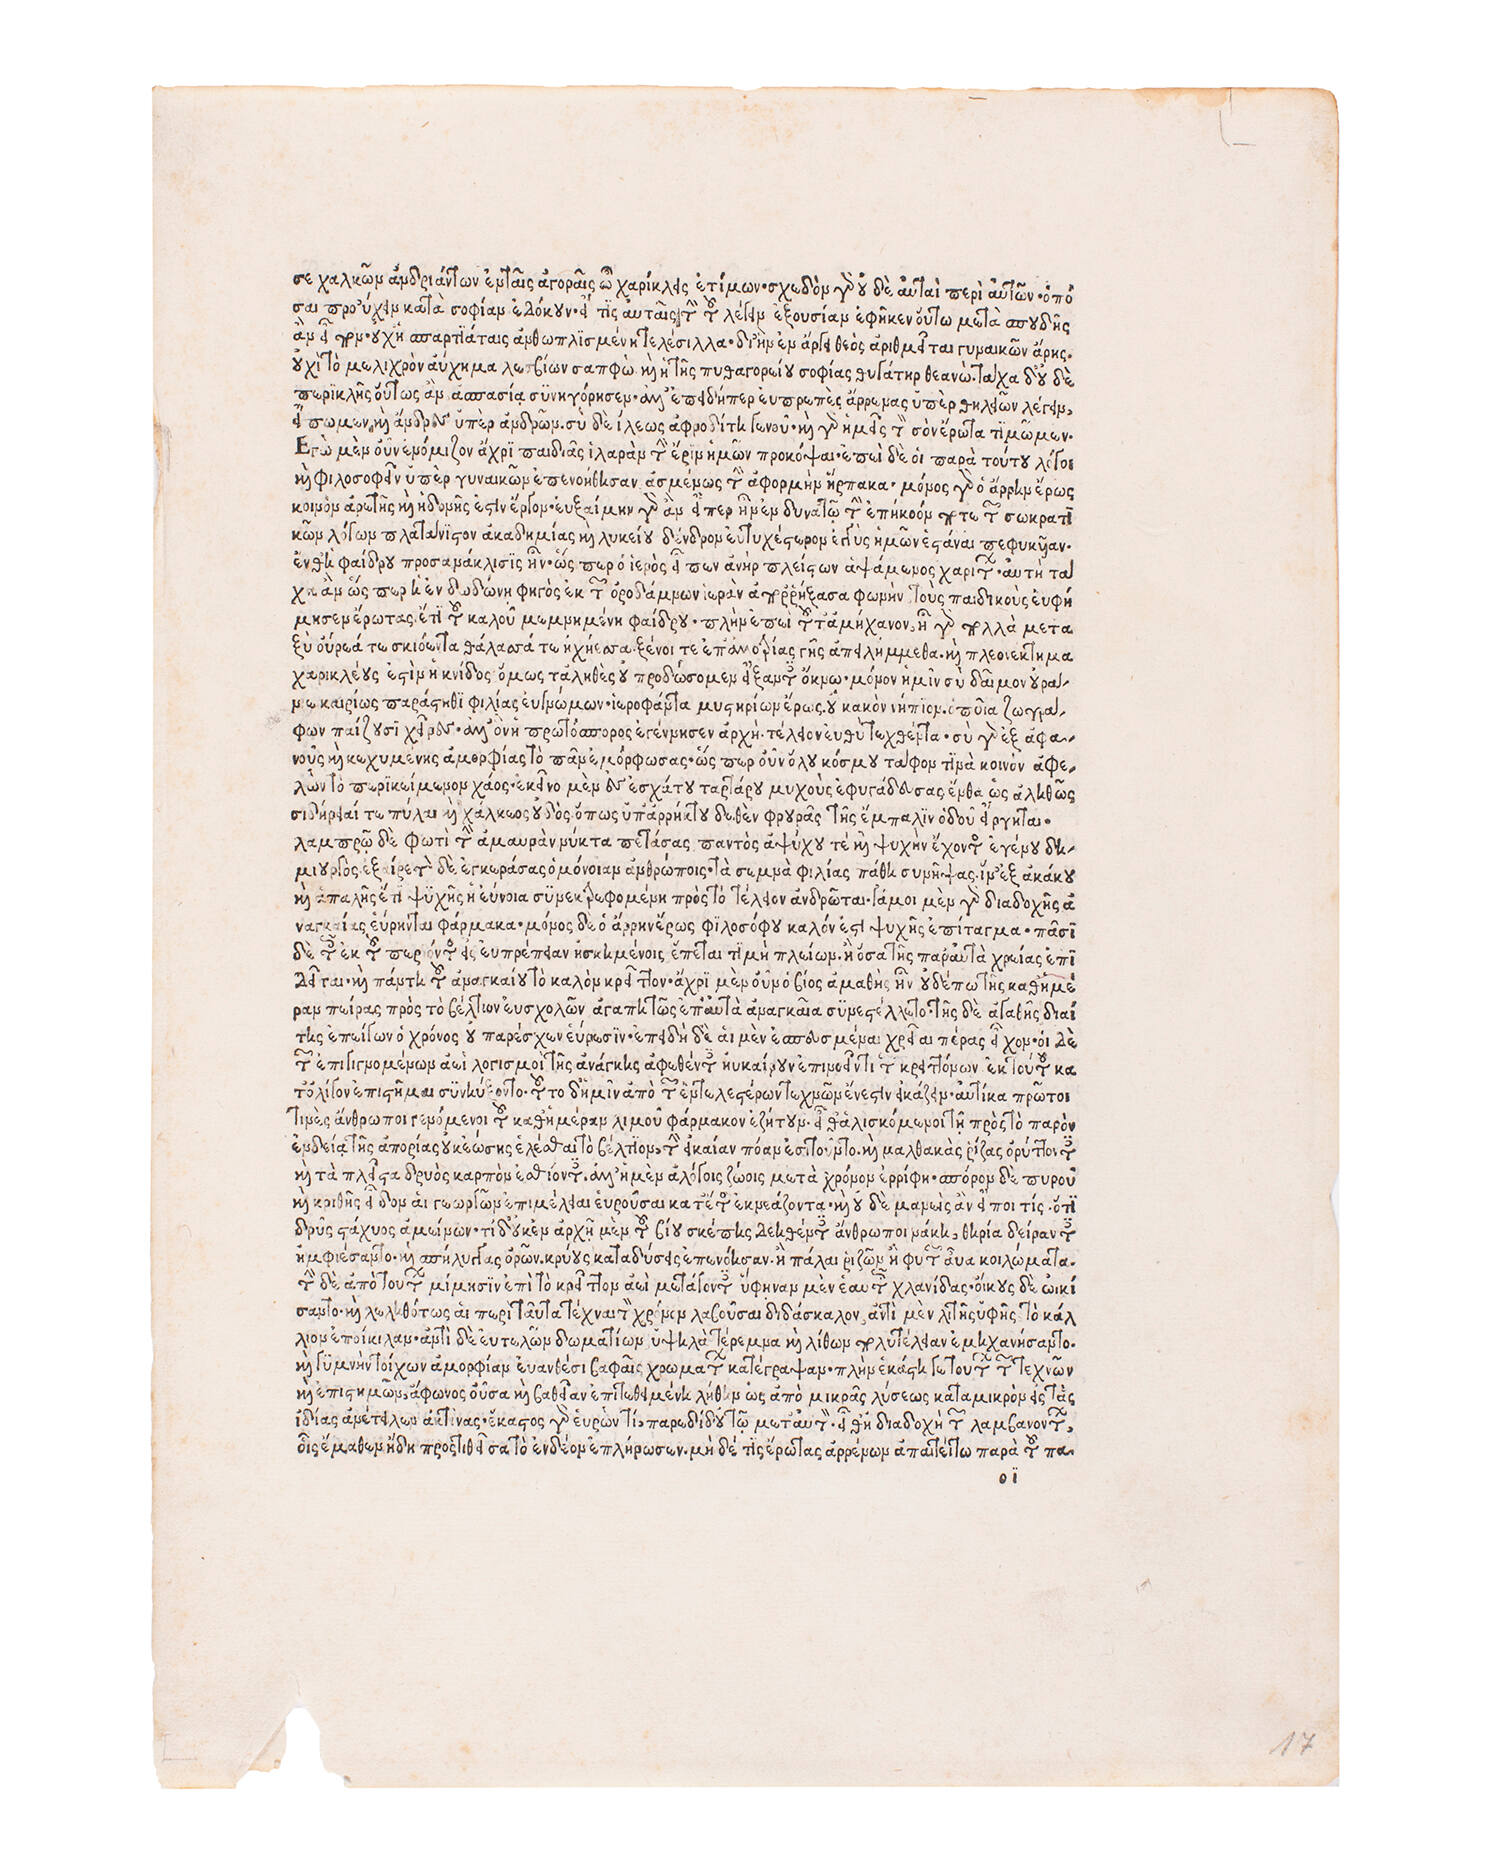 σε χαλκῶν ἀνδριάντων ἐν ταῖς ἀγοραῖς ὦ χαρίκλεις ἐτίμων· σχεδὸν γὰρ οὐδὲ αὐταὶ περὶ αὐτῶν· ὁπό
σαι προύχειν κατὰ σοφίαν ἐδόκουν· εἴ τις αὐταῖς τὴν τοῦ λέγειν ἐξουσίαν ἐφῆκεν οὕτω μετὰ σπουδῆς
ἂν εἶπον· οὐχ ἡ σπαρτιάταις ἀνθωπλισμένη τελέσιλλα· δι' ἣν ἐν ἄργει θεὸς ἀριθμεῖται γυναικῶν ἄρης.
οὐχὶ τὸ μελιχρὸν αὔχημα λεσβίων σαπφὼ. καὶ ἡ τῆς πυθαγορείου σοφίας θυγάτηρ θεανὼ. τάχα δ' οὐδὲ
περικλῆς οὕτως ἂν ἀσπασίᾳ συνηγόρησεν. ἀλλ' ἐπειδήπερ εὐπρεπὲς ἄρρενας ὑπὲρ θηλειῶν λέγειν,
εἴπωμεν καὶ ἄνδρες ὑπὲρ ἀνδρῶν. σὺ δὲ ἵλεως ἀφροδίτη γενοῦ· καὶ γὰρ ἡμεῖς τὸν σὸν ἔρωτα τιμῶμεν.
Ἐγὼ μὲν οὖν ἐνόμιζον ἄχρι παιδιᾶς ἱλαρὰν τὴν ἔριν ἡμῶν προκόψαι· ἐπεὶ δὲ οἱ παρὰ τούτου λόγοι
καὶ φιλοσοφεῖν ὑπὲρ γυναικῶν ἐπενοήθησαν. ἀσμένως τὴν ἀφορμὴν ἥρπακα· μόνος γὰρ ὁ ἄρρην ἔρως
κοινὸν ἀρετῆς καὶ ἡδονῆς ἐστιν ἔργον· εὐξαίμην γὰρ ἂν εἴπερ ἦν ἐν δυνατῷ τὴν ἐπήκοόν ποτε τῶν σωκρατι
κῶν λόγων πλατάνιστον ἀκαδημίας καὶ λυκείου δένδρον εὐτυχέστερον ἐγγὺς ἡμῶν ἑστάναι πεφυκῦιαν.
ἔνθα ἡ φαίδρου προσανάκλισις ἦν· ὥσπερ ὁ ἱερὸς εἶπεν ἀνὴρ πλείστων ἁψάμενος χαρίτων· αὐτὴ τά
χα ἂν ὥσπερ ἡ ἐν δωδώνῃ φηγὸς ἐκ τῶν ὀροδάμνων ἱερὰν ἀπορρήξασα φωνὴν τοὺς παιδικοὺς εὐφή
μησεν ἔρωτας. ἔτι τοῦ καλοῦ μεμνημένη φαίδρου· πλὴν ἐπεὶ τοῦτ' ἀμήχανον, ἦ γὰρ πολλὰ μετα
ξὺ οὔρεά τε σκιόεντα θάλασσά τε ἠχήεσσα. ξένοι τε ἐπ' ἀλλοτρίας γῆς ἀπειλήμμεθα. καὶ πλεονέκτημα
χαρικλέους ἐστὶν ἡ κνίδος. ὅμως τἀληθὲς οὐ προδώσομεν εἴξαντες ὄκνῳ· μόνον ἡμῖν σὺ δαῖμον οὐρά-
νιε καιρίως παράστηθι φιλίας εὐγνώμων. ἱεροφάντα μυστηρίων ἔρως. οὐ κακὸν νήπιον. ὁποῖα ζωγρά-
φων παίζουσι χεῖρες· ἀλλ' ὃν ἡ πρωτόσπορος ἐγέννησεν ἀρχὴ. τέλειον εὐθὺ τεχθέντα· σὺ γὰρ ἐξ ἀφα-
νοῦς καὶ κεχυμένης ἀμορφίας τὸ πᾶν ἐμόρφωσας· ὥσπερ οὖν ὅλου κόσμου τάφον τινὰ κοινὸν ἀφε-
λὼν τὸ περικείμενον χάος· ἐκεῖνο μὲν ἐς ἐσχάτου ταρτάρου μυχοὺς ἐφυγάδευσας. ἔνθα ὡς ἀληθῶς
σιδήρειαί τε πύλαι καὶ χάλκεος οὐδός. ὅπως ὑπ' ἀρρήκτου δεθὲν φρουρᾶς τῆς ἔμπαλιν ὁδοῦ εἴργηται.
λαμπρῷ δὲ φωτὶ τὴν ἀμαυρὰν νύκτα πετάσας παντὸς ἀψύχου τέ καὶ ψυχὴν ἔχοντος ἐγένου δη-
μιουργός. ἐξαίρετον δὲ ἐγκεράσας ὁμόνοιαν ἀνθρώποις· τὰ σεμνὰ φιλίας πάθη συνῆψας. ἵν' ἐξ ἀκάκου
καὶ ἁπαλῆς ἔτι ψυχῆς ἡ εὔνοια συνεκτρεφομένη πρὸς τὸ τέλειον ἀνδρῶται. γάμοι μὲν γὰρ διαδοχῆς ἀ
ναγκαίας εὕρηνται φάρμακα· μόνος δὲ ὁ ἄρρην ἔρως φιλοσόφου καλόν ἐστι ψυχῆς ἐπίταγμα· πᾶσι
δὲ τοῖς ἐκ τοῦ περιόντος εἰς εὐπρέπειαν ἠσκημένοις ἕπεται τιμὴ πλείων. ἢ ὅσα τῆς παρ' αὐτὰ χρείας ἐπι
δεῖται· καὶ πάντη τοῦ ἀναγκαίου τὸ καλὸν κρεῖττον· ἄχρι μὲν οὖν ὁ βίος ἀμαθὴς ἦν οὐδέπω τῆς καθ' ἡμέ
ραν πείρας πρὸς τὸ βέλτιον εὐσχολῶν ἀγαπητῶς ἐπ' αὐτὰ ἀναγκαῖα συνεστέλλετο. τῆς δὲ ἀγαθῆς διαί
της ἐπείγων ὁ χρόνος οὐ παρέσχεν εὕρεσιν· ἐπειδὴ δὲ αἱ μὲν ἐπείγουσαι χρεῖαι πέρας εἶχον· οἱ δὲ
τῶν ἐπιγιγνομένων ἀεὶ λογισμοὶ τῆς ἀνάγκης ἀφεθέντες ηὐκαίρουν ἐπινοεῖν τι τῶν κρειττόνων ἐκ τούτου κα
τ' ὀλίγον ἐπιστῆμαι συνηύξοντο. τοῦτο δ' ἡμῖν ἀπὸ τῶν ἐντελεστέρων τεχνῶν ἔνεστιν εἰκάζειν. αὐτίκα πρῶτοι
τινὲς ἄνθρωποι γενόμενοι τοῦ καθ' ἡμέραν λιμοῦ φάρμακον ἐζήτουν. εἶθ' ἁλισκόμενοι τῇ πρὸς τὸ παρὸν
ἐνδείᾳ τῆς ἀπορίας οὐκ ἐώσης ἑλέσθαι τὸ βέλτιον, τὴν εἰκαίαν πόαν ἐσιτοῦντο. καὶ μαλθακὰς ῥίζας ὀρύττοντες
καὶ τὰ πλεῖστα δρυὸς καρπὸν ἐσθίοντες. ἀλλ' ἡ μὲν ἀλόγοις ζώοις μετὰ χρόνον ἐρρίφη· σπόρον δὲ πυροῦ
καὶ κριθῆς εἶδον αἱ γεωργῶν ἐπιμέλειαι εὑροῦσαι κατ' ἔτος ἐκνεάζοντα· καὶ οὐδὲ μανεὶς ἂν εἴποι τίς. ὅτι
δρῦς στάχυος ἀμείνων· τί δ' οὐκ ἐν ἀρχῇ μὲν τοῦ βίου σκέπης δεηθέντες ἄνθρωποι νάκη, θηρία δείραντες
ἠμφιέσαντο· καὶ σπήλυγγας ὀρῶν. κρύους καταδύσεις ἐπενόησαν. ἢ πάλαι ῥιζῶν ἢ φυτῶν αὖα κοιλώματα.
τὴν δὲ ἀπὸ τούτων μίμησιν ἐπὶ τὸ κρεῖττον ἀεὶ μετάγοντες ὕφηναν μὲν ἑαυτοῖς χλανίδας· οἴκους δὲ ᾠκί
σαντο. καὶ λεληθότως αἱ περὶ ταῦτα τέχναι τὸν χρόνον λαβοῦσαι διδάσκαλον, ἀντὶ μὲν λιτῆς ὑφῆς τὸ κάλ
λιον ἐποίκιλαν· ἀντὶ δὲ εὐτελῶν δωματίων ὑψηλὰ τέρεμνα καὶ λίθων πολυτέλειαν ἐμηχανήσαντο.
καὶ γυμνὴν τοίχων ἀμορφίαν εὐανθέσι βαφαῖς χρωμάτων κατέγραψαν· πλὴν ἑκάστη γε τούτων τῶν τεχνῶν
καὶ ἐπιστημῶν, ἄφωνος οὖσα καὶ βαθεῖαν ἐπιτεθειμένη λήθην ὡς ἀπὸ μικρᾶς λύσεως κατὰ μικρὸν εἰς τὰς
ἰδίας ἀνέτειλεν ἀκτῖνας· ἕκαστος γὰρ εὑρών τι, παρεδίδου τῷ μετ' αὐτόν. εἶθ' ἡ διαδοχὴ τῶν λαμβανόντων,
οἷς ἔμαθεν ἤδη προστιθεῖσα τὸ ἐνδέον ἐπλήρωσεν. μὴ δέ τις ἔρωτας ἀρρένων ἀπαιτείτω παρὰ τοῦ πα-
οϊ
17